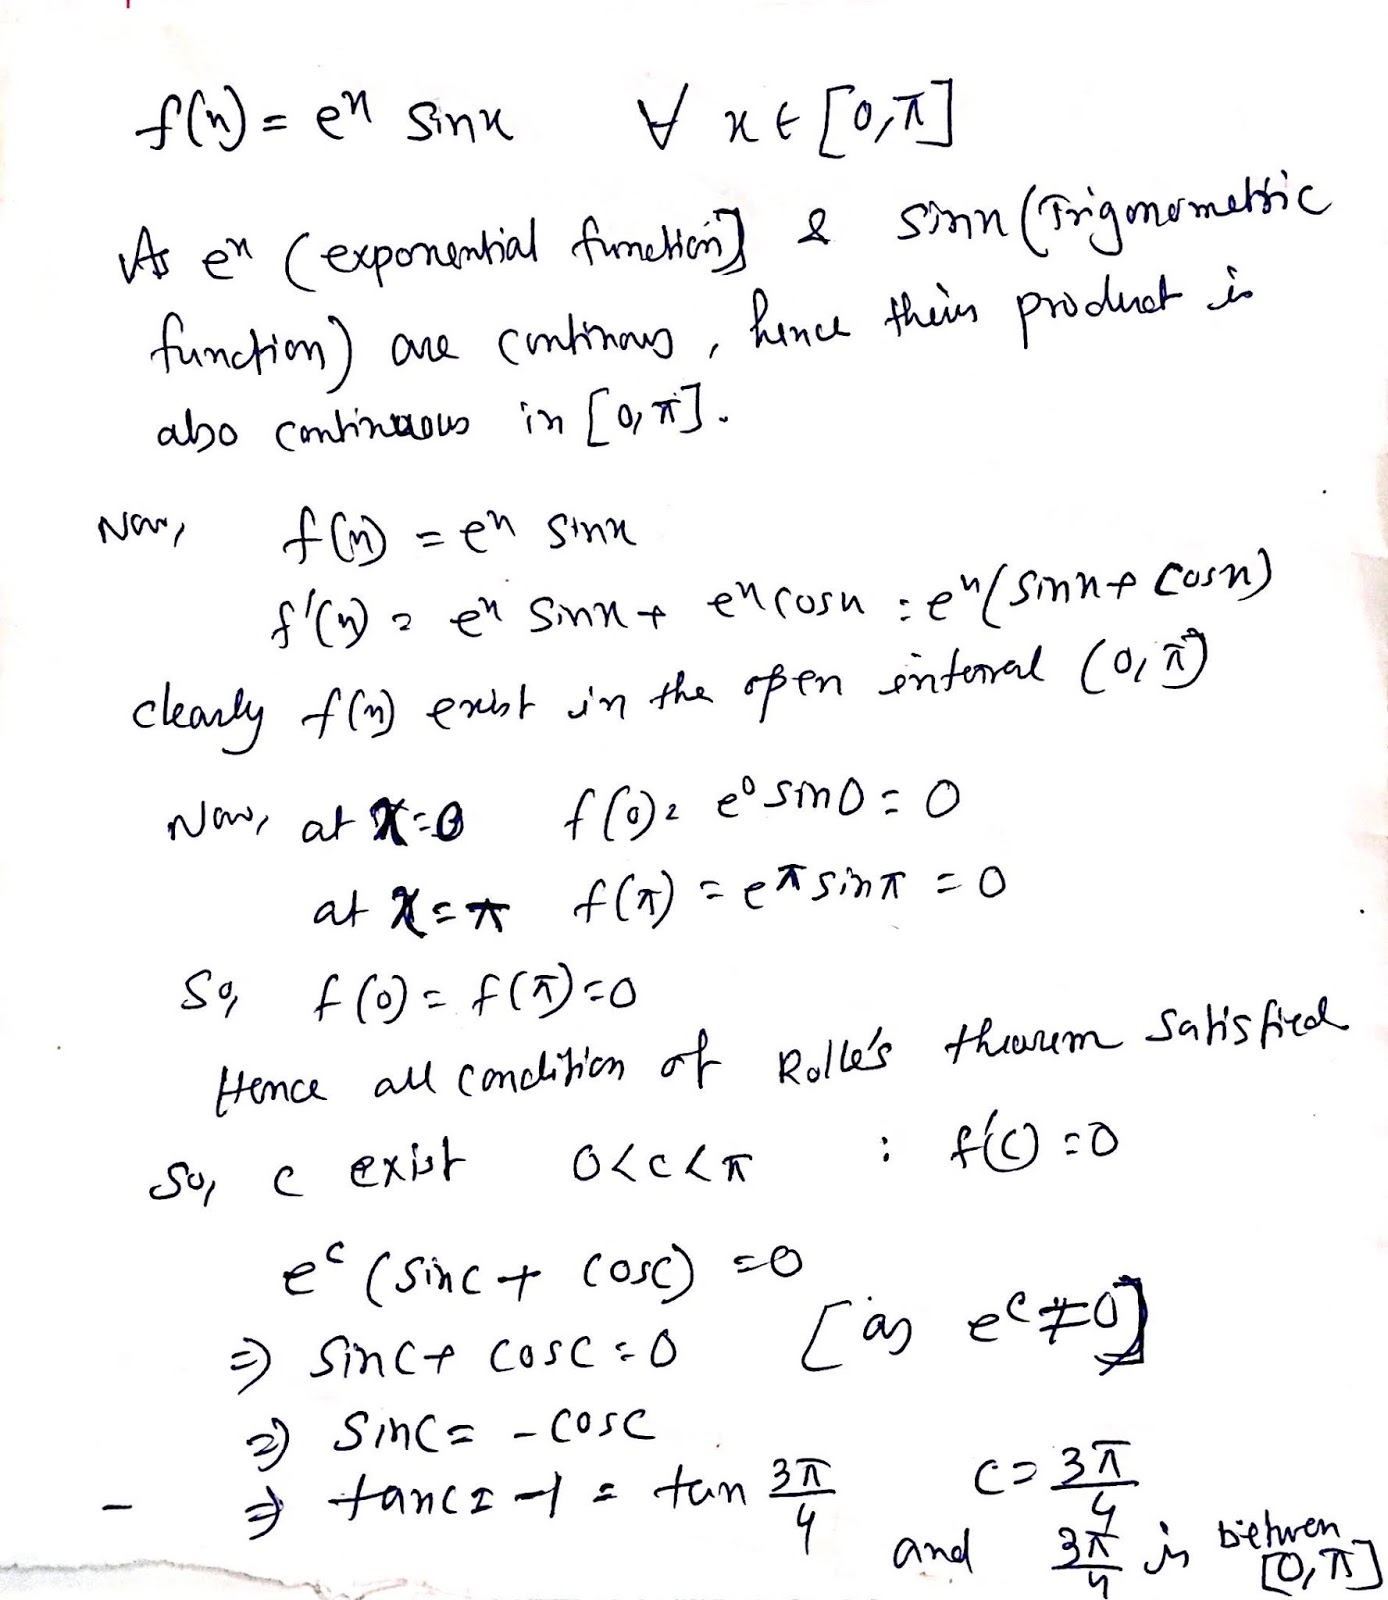 f(x) = e^x sinx ∀ x ∈ [0,π]
As e^x (exponential function) & sinx (Trigonometric
function) are continous, hence their product is
also continuous in [0,π].
Now, f(x) = e^x sinx
f'(x) = e^x sinx + e^x cosx = e^x(sinx + cosx)
clearly f(x) exist in the open interval (0,π)
Now, at x=0 f(0) = e^0 sin0 = 0
at x=π f(π) = e^π sinπ = 0
So, f(0) = f(π) = 0
Hence all condition of Rolle's theorem satisfied
So, c exist 0<c<π : f'(c) = 0
e^c (sinc + cosc) = 0
⇒ sinc + cosc = 0 [as e^c ≠ 0]
⇒ sinc = -cosc
- ⇒ tanc = -1 = tan 3π/4 c = 3π/4
and 3π/4 is between [0,π]